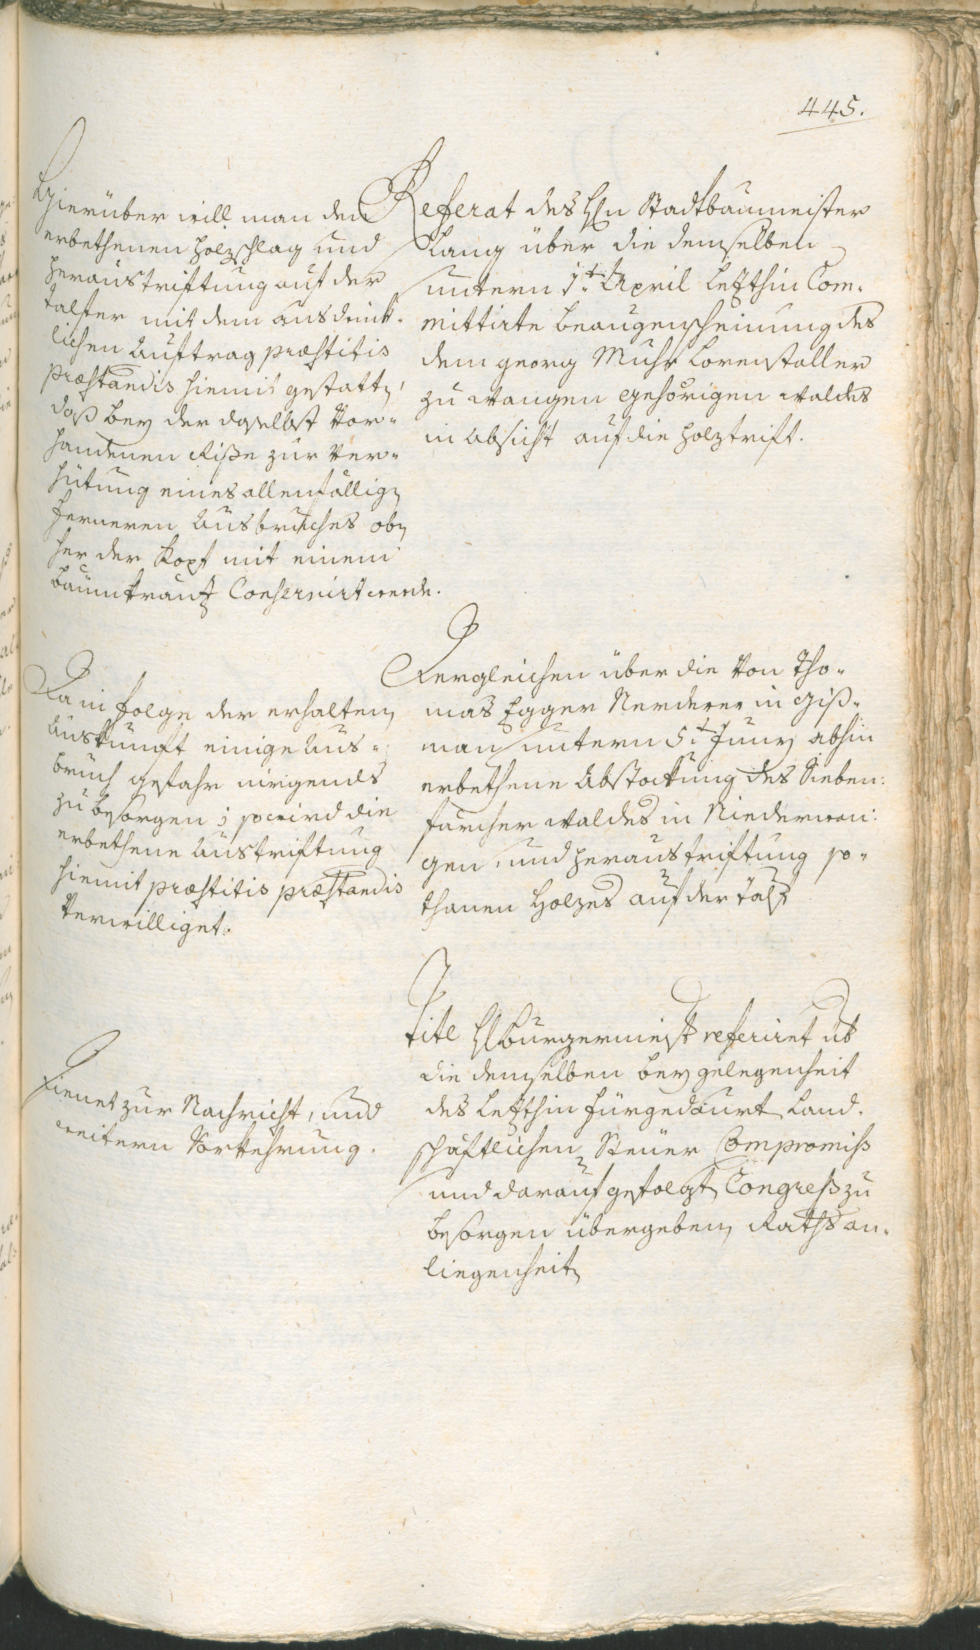 445.
Referat des Hln Stadtbaumeister
Lang über die demselben
untern 1t. April letzthin Com-
mittirte beaugenscheinung des
dem georg Muhr Lorenstaller
zu Wangen gehörigen Waldes
in absicht auf die holztrift.
Hierüber will man den
erbethenen holzschlag und
heraustriftung auf der
talfer mit dem ausdrük-
lichen Auftrag præstitis
præstandis hiemit gestattn,
daß bey der daselbst vor-
handenen Riße zur ver-
hütung eines allenfällign
ferneren Ausbruches obn
her der Kopf mit einem
baumkrantz Conservirt werde.
Dergleichen über die von Tho-
mas Egger Nerderer in Giß-
man untern 5t Juny abhin
erbethene abstockung des Sieben-
furcher waldes in Niederwan-
gen und heraustriftung so-
thanen Holzes auf der talf
Da in folge der erhalten
Auskunft einige Aus-
bruch gefahr nirgends
zu besorgen; so wird die
erbethene Austriftung
hiemit præstitis præstandis
verwilliget.
Tite Hl Burgermeist referiret üb
die demselben bey gelegenheit
des letzthin fürgedaurt Land-
schäftlichen Steuer Compromiss
und darauf gefolgt Congress zu
besorgen übergeben Rathsan-
liegenheit
Dienet zur Nachricht, und
weitern Vorkehrung.